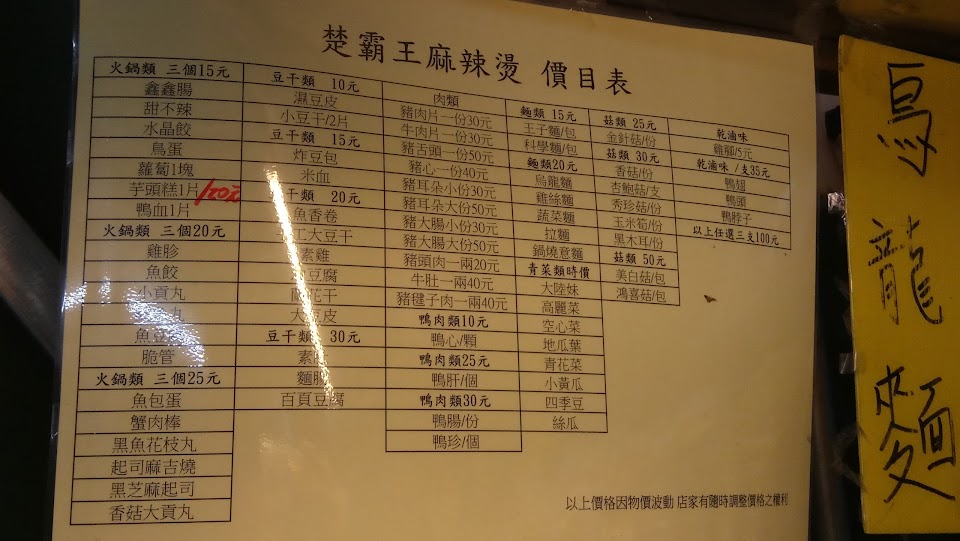 楚霸王麻辣燙 價目表
火鍋類 三個15元
鑫鑫腸
甜不辣
水晶餃
鳥蛋
蘿蔔1塊
芋頭糕1片/20元
鴨血1片
火鍋類 三個20元
雞胗
魚餃
小貢丸
丸
魚豆
脆管
火鍋類 三個25元
魚包蛋
蟹肉棒
黑魚花枝丸
起司麻吉燒
黑芝麻起司
香菇大貢丸
豆干類 10元
濕豆皮
小豆干/2片
豆干類 15元
炸豆包
米血
干類 20元
魚香卷
工大豆干
素雞
豆腐
花干
大 皮
豆干類 30元
素
麵腸
百頁豆腐
肉類
豬肉片一份30元
牛肉片一份30元
豬舌頭一份50元
豬心一份40元
豬耳朵小份30元
豬耳朵大份50元
豬大腸小份30元
豬大腸大份50元
豬頭肉一兩20元
牛肚一兩40元
豬腱子肉一兩40元
鴨肉類10元
鴨心/顆
鴨肉類25元
鴨肝/個
鴨肉類30元
鴨腸/份
鴨珍/個
麵類 15元
王子麵/包
科學麵/包
麵類20元
烏龍麵
雞絲麵
蔬菜麵
拉麵
鍋燒意麵
青菜類時價
大陸妹
高麗菜
空心菜
地瓜葉
青花菜
小黃瓜
四季豆
絲瓜
菇類 25元
金針菇/份
菇類 30元
香菇/份
杏鮑菇/支
秀珍菇/份
玉米筍/份
黑木耳/份
菇類 50元
美白菇/包
鴻喜菇/包
乾滷味
雞腳/5元
乾滷味 /支35元
鴨翅
鴨頭
鴨脖子
以上任選三支100元
以上價格因物價波動 店家有隨時調整價格之權利
烏龍麵